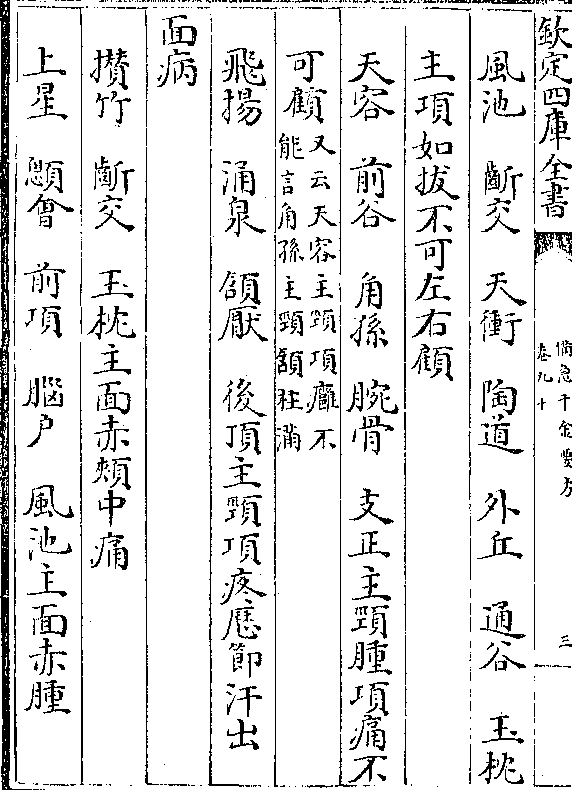 欽定四庫全書
備急千金要方
卷九十
三
風池 齗交 天衝 陶道 外丘 通谷 玉枕
主項如拔不可左右顧
天容 前谷 角孫 腕骨 支正主頸腫項痛不
可顧又云天容主頸項癰不
能言角孫主頸頷柱滿
飛揚 涌泉 頷厭 後頂主頸項疼歷節汗出
面病
攅竹 齗交 玉枕主面赤頰中痛
上星 顖會 前項 腦户 風池主面赤腫